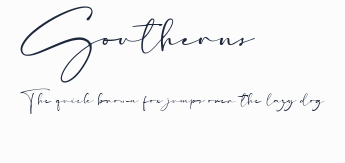 Southerns
The quick brown fox jumps over the lazy dog